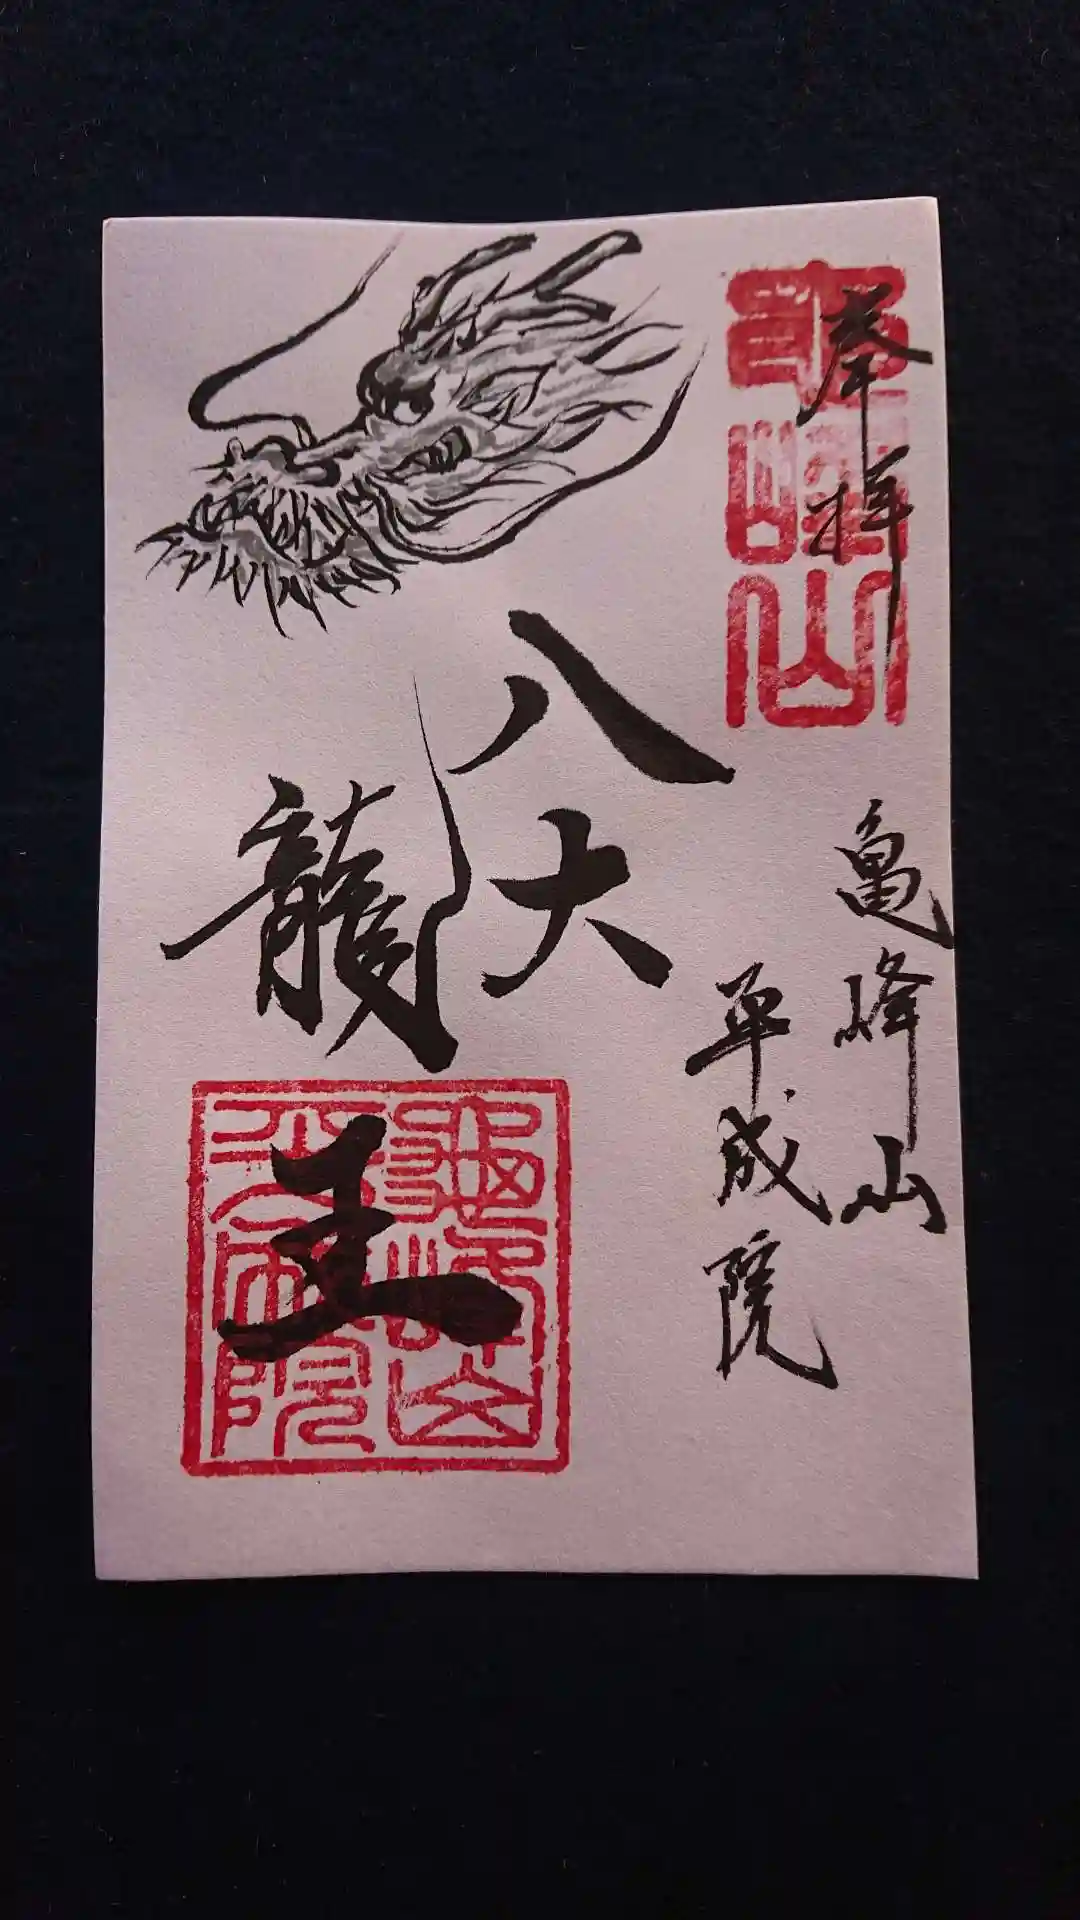 奉拝
亀峰山
亀峰山
平成院
八大
龍
王
亀峰山
平成院